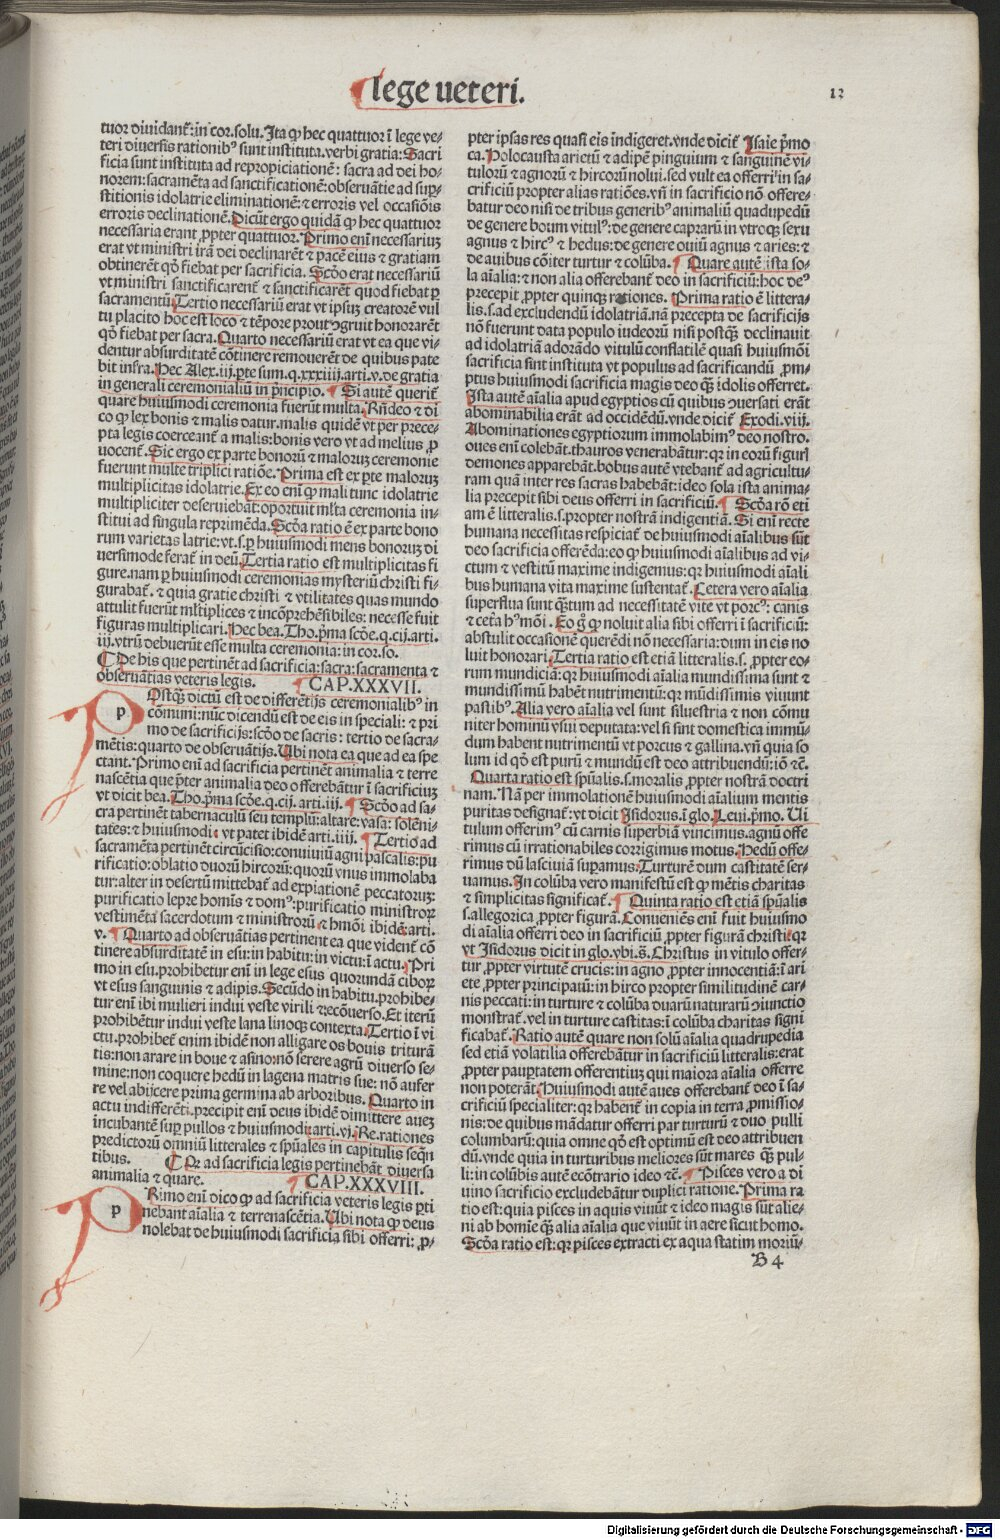 lege veteri.
12
tuor diuidant᷑: in cor. solu. Ita ꝙ hec quattuor ī lege ve-
teri diuersis rationibꝰ sunt instituta. verbi gratia: Sacri
ficia sunt instituta ad repropiciationē: sacra ad dei ho-
norem: sacramēta ad sanctificationē: obseruātie ad suꝑ-
stitionis idolatrie eliminationē: ⁊ erroris vel occasiōis
erroris declinationē. Dicūt ergo quidā ꝙ hec quattuor
necessaria erant ꝓpter quattuor. Primo enī necessariuꝫ
erat vt ministri irā dei declinarēt ⁊ pacē eius ⁊ gratiam
obtinerēt qd̓ fiebat per sacrificia. Scd̓o erat necessariū
vt ministri sanctificarent᷑ ⁊ sanctificarēt quod fiebat ꝑ
sacramentū. Tertio necessariū erat vt ipsuꝫ creatorē vul
tu placito hoc est loco ⁊ tēpore prout ꝯgruit honorarēt
qd̓ fiebat per sacra. Quarto necessariū erat vt ea que vi-
dentur absurditatē cōtinere remouerēt de quibus pate
bit infra. Hec Alex. iij. ꝑte sum. q. xxxiiij. arti. v. de gratia
in generali ceremonialiū in p̄ncipio. Si autē querit᷑
quare huiusmodi ceremonia fuerūt multa. Rn̄deo ⁊ di
co ꝙ lex bonis ⁊ malis datur. malis quidē vt per prece-
pta legis coerceant᷑ a malis: bonis vero vt ad melius ꝓ
uocent᷑. Sic ergo ex parte bonorū ⁊ maloruꝫ ceremonie
fuerunt multe triplici ratiōe. Prima est ex pte maloruꝫ
multiplicitas idolatrie. Ex eo enī ꝙ mali tunc idolatrie
multipliciter deseruiebāt: oportuit ml̓ta ceremonia in-
stitui ad singula reprimēda. Scd̓a ratio ē ex parte bono
rum varietas latrie: vt. s. ꝑ huiusmodi mens bonoruꝫ di
uersimode ferat᷑ in deū. Tertia ratio est multiplicitas fi
gure. nam ꝑ huiusmodi ceremonias mysteriū christi fi-
gurabat᷑. ⁊ quia gratie christi ⁊ vtilitates quas mundo
attulit fuerūt ml̓tiplices ⁊ incōprehēsibiles: necesse fuit
figuras multiplicari. Hec bea. Tho. p̄ma scd̓e. q. cij. arti.
iij. vtrū debuerūt esse multa ceremonia: in cor. so.
De his que pertinēt ad sacrificia: sacra: sacramenta ⁊
obseruātias veteris legis. CAP. XXXVII.
p Ostꝙ̄ dictū est de differētijs ceremonialibꝰ in
cōmuni: nūc dicendū est de eis in speciali: ⁊ pri
mo de sacrificijs: scd̓o de sacris: tertio de sacra-
mētis: quarto de obseruātijs. Ubi nota ea que ad ea spe
ctant. Primo enī ad sacrificia pertinēt animalia ⁊ terre
nascētia que p̄ter animalia deo offerebātur ī sacrificiuꝫ
vt dicit bea. Tho. p̄ma scd̓e. q. cij. arti. iij. Scd̓o ad sa-
cra pertinēt tabernaculū seu templū: altare: vasa: solēni-
tates: ⁊ huiusmodi. vt patet ibidē arti. iiij. Tertio ad
sacramēta pertinēt circūcisio: conuiuiū agni pascalis: pu
rificatio: oblatio duorū hircorū: quorū vnus immolaba
tur: alter in desertū mittebat᷑ ad expiationē peccatoruꝫ:
purificatio lepre homīs ⁊ domꝰ: purificatio ministroꝝ
vestimēta sacerdotum ⁊ ministrorū: ⁊ hmōi ibidē. arti.
v. Quarto ad obseruātias pertinent ea que vident᷑ cō
tinere absurditatē in esu: in habitu: in victu: ī actu. Pri
mo in esu. prohibetur enī in lege esus quorundā ciboꝝ
vt esus sanguinis ⁊ adipis. Secūdo in habitu. prohibe-
tur enī ibi mulieri indui veste virili ⁊ ecōuerso. Et iterū
prohibētur indui veste lana linoqꝫ contexta. Tertio ī vi
ctu. prohibet᷑ enim ibidē non alligare os bouis triturā
tis: non arare in boue ⁊ asino: nō serere agrū diuerso se-
mine: non coquere hedū in lagena matris sue: nō aufer
re vel abijcere prima germina ab arboribus. Quarto in
actu indifferēti. precipit enī deus ibidē dimittere auez
incubantē suꝑ pullos ⁊ huiusmodi. arti. vi. Re. rationes
predictorū omniū litterales ⁊ spūales in capitulis seqn̄
tibus. Qr̄ ad sacrificia legis pertinebāt diuersa
animalia ⁊ quare. CAP. XXXVIII.
p Rimo enī dico ꝙ ad sacrificia veteris legis ꝑti
nebant aīalia ⁊ terrenascētia. Ubi nota ꝙ deus
nolebat de huiusmodi sacrificia sibi offerri: ꝓ-
pter ipsas res quasi eis indigeret. vnde dicit᷑ Isaie p̄mo
ca. Holocausta arietū ⁊ adipē pinguium ⁊ sanguinē vi-
tulorū ⁊ agnorū ⁊ hircorū nolui. sed vult ea offerri in sa-
crificiū propter alias ratiōes. vn̄ in sacrificio nō offere-
batur deo nisi de tribus generibꝰ animaliū quadupedū
de genere boum vitulꝰ: de genere caprarū in vtroqꝫ sexu
agnus ⁊ hircꝰ ⁊ hedus: de genere ouiū agnus ⁊ aries: ⁊
de auibus cōiter turtur ⁊ colūba. Quare autē ista so-
la aīalia: ⁊ non alia offerebant᷑ deo in sacrificiū: hoc deꝰ
precepit ꝓpter quinqꝫ rationes. Prima ratio ē littera-
lis. s. ad excludendū idolatriā. nā precepta de sacrificijs
nō fuerunt data populo iudeorū nisi postꝙ̄ declinauit
ad idolatriā adorādo vitulū conflatilē quasi huiusmōi
sacrificia sint instituta vt populus ad sacrificandū ꝓm-
ptus huiusmodi sacrificia magis deo ꝙ̄ idolis offerret.
Ista autē aīalia apud egyptios cū quibus ꝯuersati erāt
abominabilia erāt ad occidēdū. vnde dicit᷑ Exodi. viij.
Abominationes egyptiorum immolabimꝰ deo nostro.
oues enī colebāt. thauros venerabātur: qꝛ in eorū figurꝭ
demones apparebāt. bobus autē vtebant᷑ ad agricultu-
ram quā inter res sacras habebāt: ideo sola ista anima-
lia precepit sibi deus offerri in sacrificiū. Scd̓a rō eti
am ē litteralis. s. propter nostrā indigentiā. Si enī recte
humana necessitas respiciat᷑ de huiusmodi aīalibus sūt
deo sacrificia offerēda: eo ꝙ huiusmodi aīalibus ad vi-
ctum ⁊ vestitū maxime indigemus: qꝛ huiusmodi aīali
bus humana vita maxime sustentat᷑. Cetera vero aīalia
superflua sunt qꝫtum ad necessitatē vite vt porcꝰ: canis
⁊ cet̓a hꝰmōi. Eo gͦ ꝙ noluit alia sibi offerri ī sacrificiū:
abstulit occasionē querēdi nō necessaria: dum in eis no
luit honorari. Tertia ratio est etiā litteralis. s. ꝓpter eo-
rum mundiciā: qꝛ huiusmodi aīalia mundissima sunt ⁊
mundissimū habēt nutrimentū: qꝛ mūdissimis viuunt
pastibꝰ. Alia vero aīalia vel sunt siluestria ⁊ non cōmu
niter hominū vsui deputata: vel si sint domestica immū-
dum habent nutrimentū vt porcus ⁊ gallina. vn̄ quia so
lum id qd̓ est purū ⁊ mundū est deo attribuendū: iō ⁊c̄.
Quarta ratio est spūalis. s. moralis ꝓpter nostrā doctri
nam. Nā per immolationē huiusmodi aīalium mentis
puritas designat᷑: vt dicit Isidorus. ī glo. Leui. p̄mo. Ui
tulum offerimꝰ cū carnis superbiā vincimus. agnū offe
rimus cū irrationabiles corrigimus motus. Hedū offe-
rimus dū lasciuiā suꝑamus: Turturē dum castitatē ser-
uamus. In colūba vero manifestū est ꝙ mētis charitas
⁊ simplicitas significat᷑. Quinta ratio est etiā spūalis
s. allegorica ꝓpter figurā. Conueniēs enī fuit huiusmo
di aīalia offerri deo in sacrificiū ꝓpter figurā christi: qꝛ
vt Isidorus dicit in glo. vbi. s̄. Christus in vitulo offer-
tur ꝓpter virtutē crucis: in agno ꝓpter innocentiā: ī ari
ete ꝓpter principatū: in hirco propter similitudinē car-
nis peccati: in turture ⁊ colūba duarū naturarū ꝯiunctio
monstrat᷑. vel in turture castitas: ī colūba charitas signi
ficabat᷑. Ratio autē quare non solū aīalia quadrupedia
sed etiā volatilia offerebātur in sacrificiū litteralis: erat
ꝓpter pauꝑtatem offerentiuꝫ qui maiora aīalia offerre
non poterāt. Huiusmodi autē aues offerebant᷑ deo ī sa-
crificiū specialiter: qꝛ habent᷑ in copia in terra ꝓmissio-
nis: de quibus mādatur offerri par turturū ⁊ duo pulli
columbarū: quia omne qd̓ est optimū est deo attribuen
dū. vnde quia in turturibus meliores sūt mares ꝙ̄ pul-
li: in colūbis autē ecōtrario ideo ⁊c̄. Pisces vero a di
uino sacrificio excludebātur duplici ratione. Prima ra
tio est: quia pisces in aquis viuūt ⁊ ideo magis sūt alie-
ni ab homīe ꝙ̄ alia aīalia que viuūt in aere sicut homo.
Scd̓a ratio est: qꝛ pisces extracti ex aqua statim moriū-
B 4
Digitalisierung gefördert durch die Deutsche Forschungsgemeinschaft - DFG